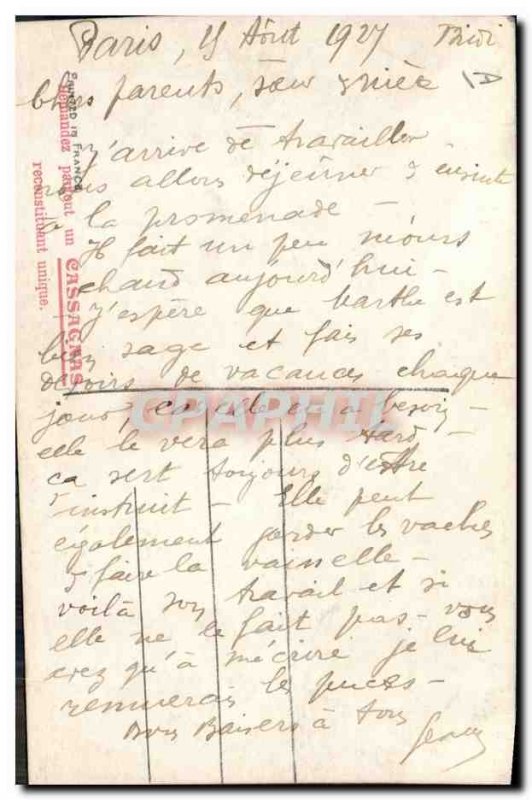 Paris, 15 Août 1927
chers parents, sœur & nièce
J'arrive de travailler
nous allons déjeuner & ensuite
à la promenade -
Il fait un peu moins
chaud aujourd'hui -
J'espère que Marthe est
bien sage et fais ses
devoirs de vacances chaque
jour, car elle en a besoin -
elle le vera plus tard -
ca sert toujours d'être
instruit - Elle peut
également garder les vaches
& faire la vaisselle -
voilà son travail et si
elle ne le fait pas - vous
avez qu'à m'écrire je lui
remuerai les puces -
Bons Baisers à tous
PRINTED IN FRANCE
Demandez partout un CASSAGNAS
reconstituant unique.
CPAPHIL